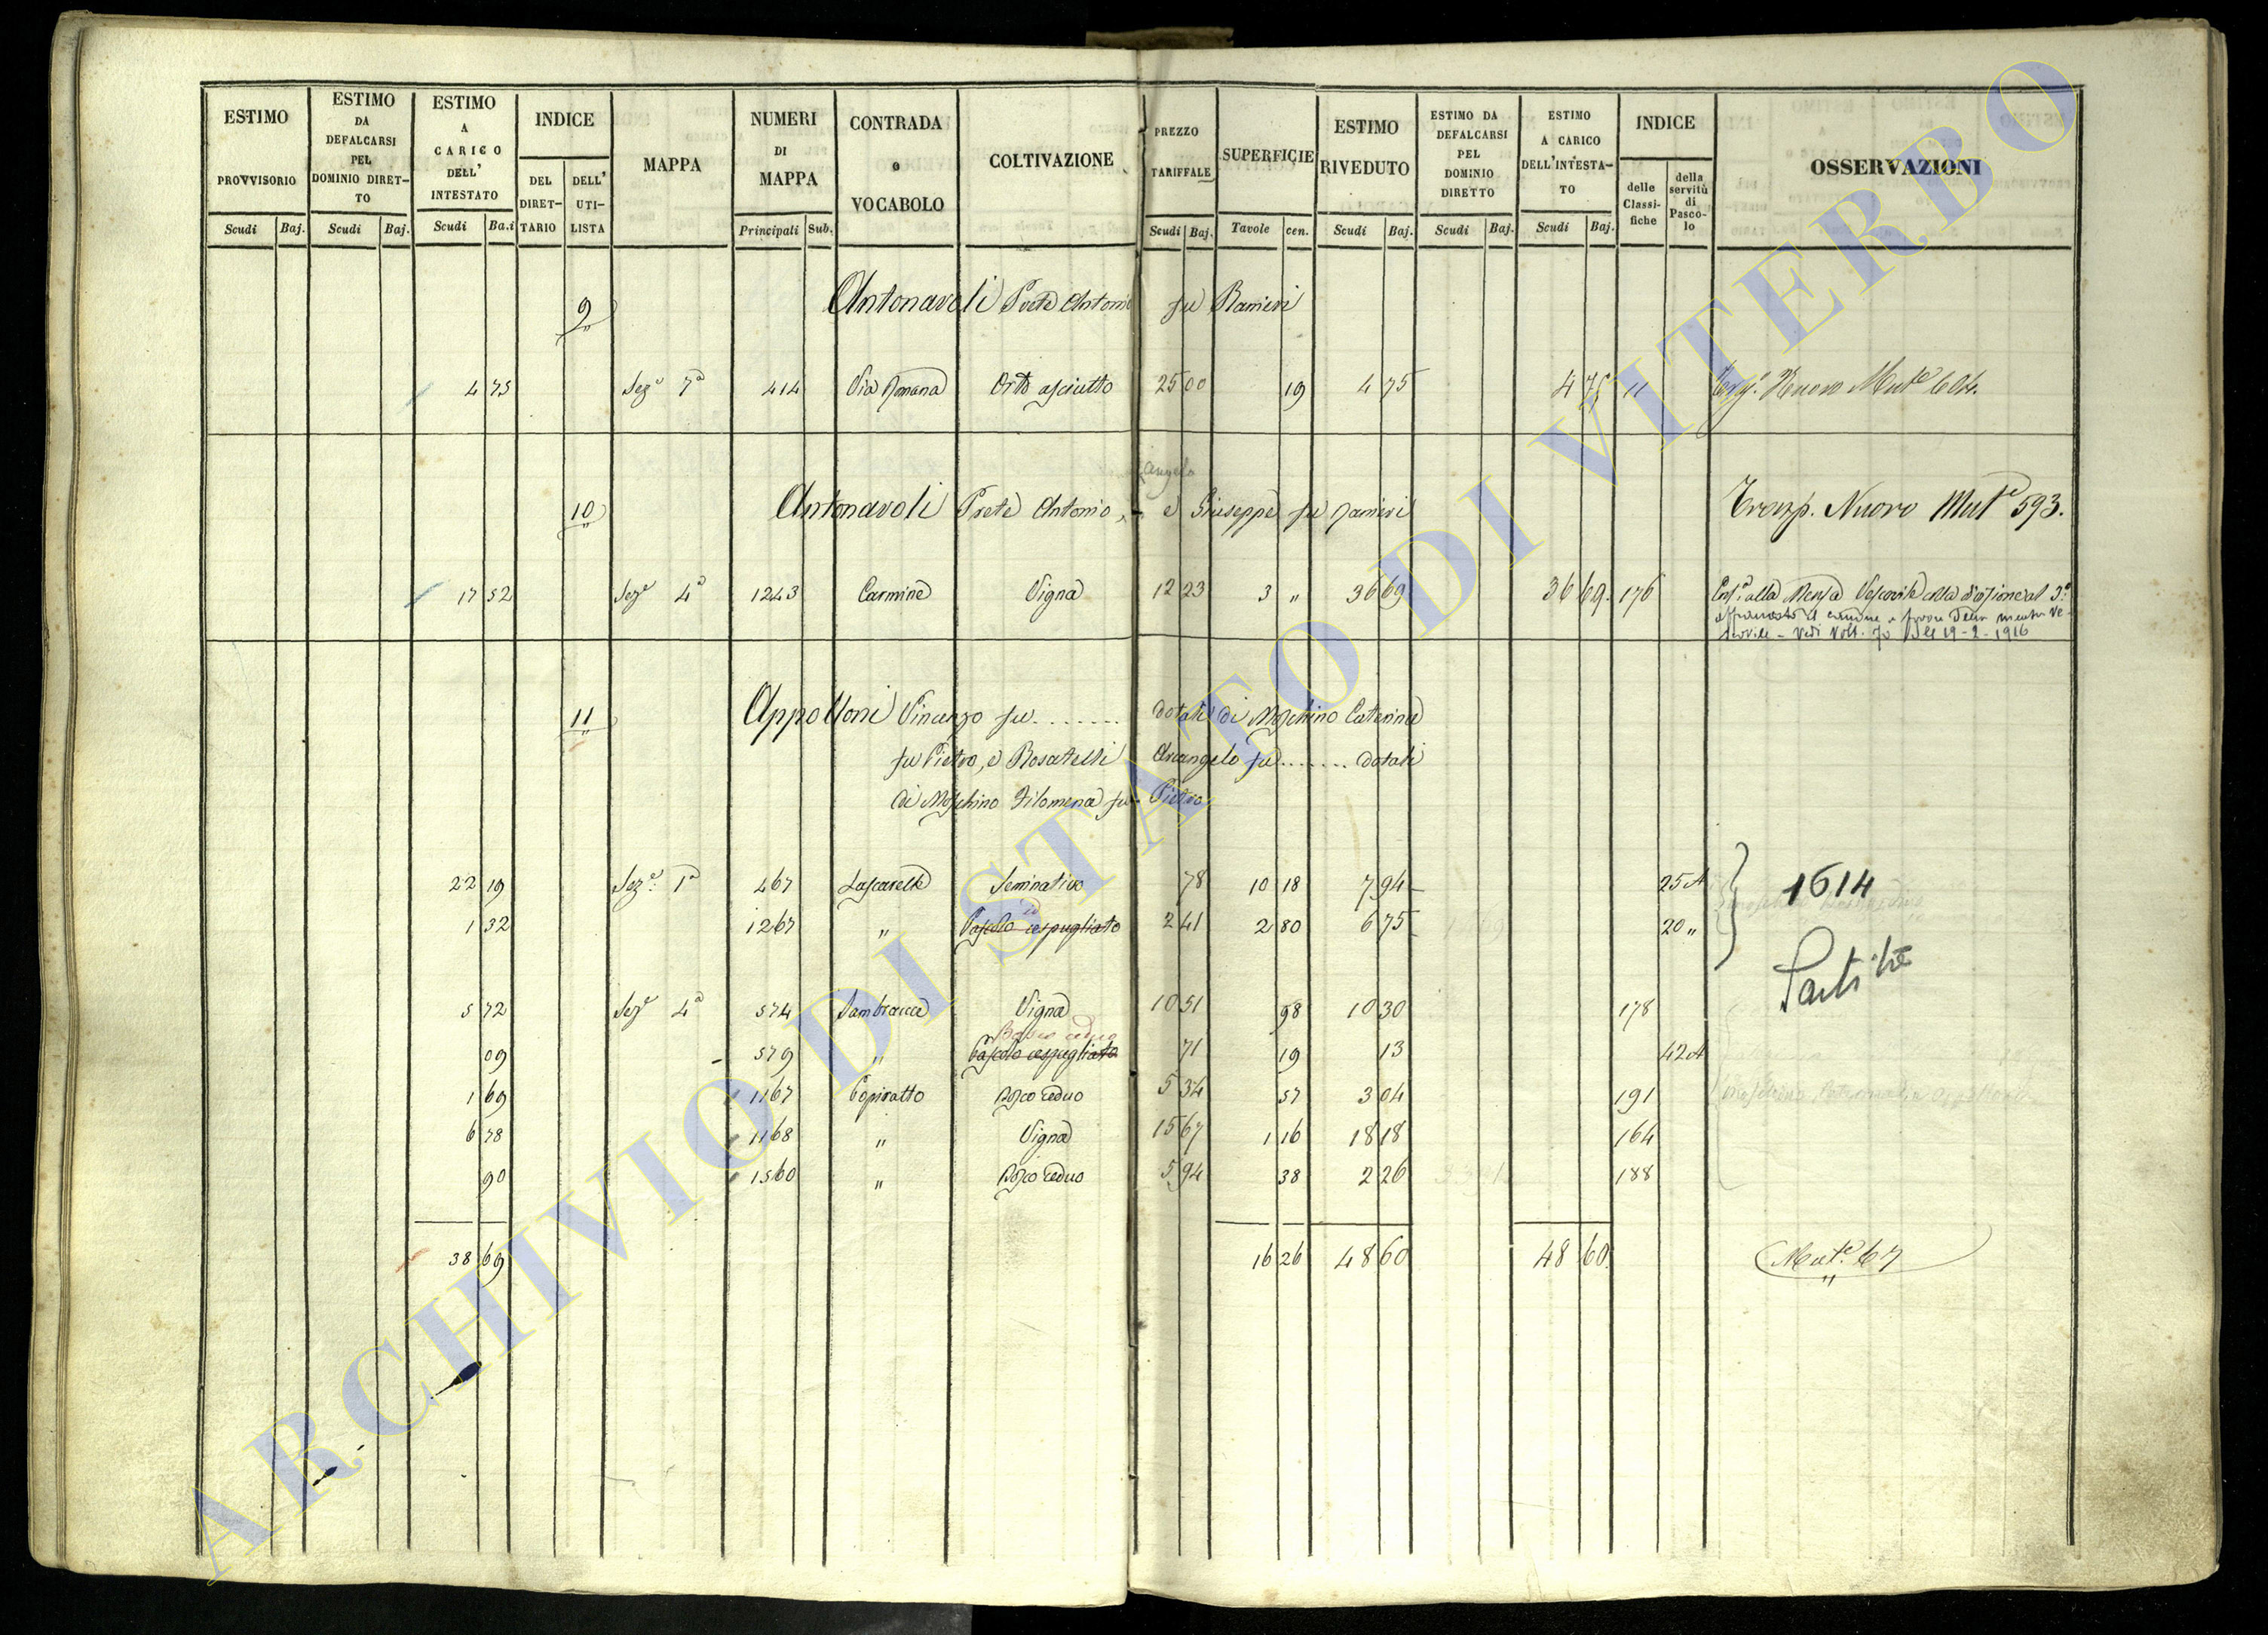 ESTIMO PROVVISORIO | ESTIMO DA DEFALCARSI PEL DOMINIO DIRETTO | ESTIMO A CARICO DELL' INTESTATO | INDICE | MAPPA | NUMERI DI MAPPA | CONTRADA o VOCABOLO | COLTIVAZIONE | PREZZO TARIFFALE | SUPERFICIE | ESTIMO RIVEDUTO | ESTIMO DA DEFALCARSI PEL DOMINIO DIRETTO | ESTIMO A CARICO DELL'INTESTATO | INDICE | OSSERVAZIONI
DEL DIRETTARIO | DELL' UTILISTA | delle Classifiche | della servitù di Pascolo
Scudi | Baj. | Scudi | Baj. | Scudi | Ba.i | Principali | Sub. | Scudi | Baj. | Tavole | cen. | Scudi | Baj. | Scudi | Baj. | Scudi | Baj.
9 Antonavoli Prete Antonio fu Ranieri
4 75 Sez.e 7a 414 Via Romana Orto asciutto 25 00 19 4 75 4 75 11 Nuovo Mut.e 604.
Angelo
10 Antonavoli Prete Antonio, e Giuseppe fu Ranieri Trasp. Nuovo Mut.e 593.
17 52 Sez.e 4a 1243 Carmine Vigna 12 23 3 " 36 69 36 69. 176 alla Mensa Vescovile
Vedi Volt. 19-2-1916
11 Appolloni Vincenzo fu ........ dotali di Moschino Caterina
fu Pietro, e Rosatelli Arcangelo fu ........ dotali
di Moschino Filomena fu Pietro
22 19 Sez.e 1a 467 Lascarelle Seminativo 78 10 18 7 94 25 A 1614
1 32 1267 " Pascolo cespugliato 2 41 2 80 6 75 20 "
Partite
5 72 Sez.e 4a 574 Sambracca Vigna 10 51 98 10 30 178
Bosco ceduo
09 579 " Pascolo cespugliato 71 19 13 42 A
1 69 1167 Popiratto Bosco ceduo 5 34 57 3 04 191
6 78 1168 " Vigna 15 67 1 16 18 18 164
90 1560 " Bosco ceduo 5 94 38 2 26 188
38 69 16 26 48 60 48 60. Mut.e 67
ARCHIVIO DI STATO DI VITERBO